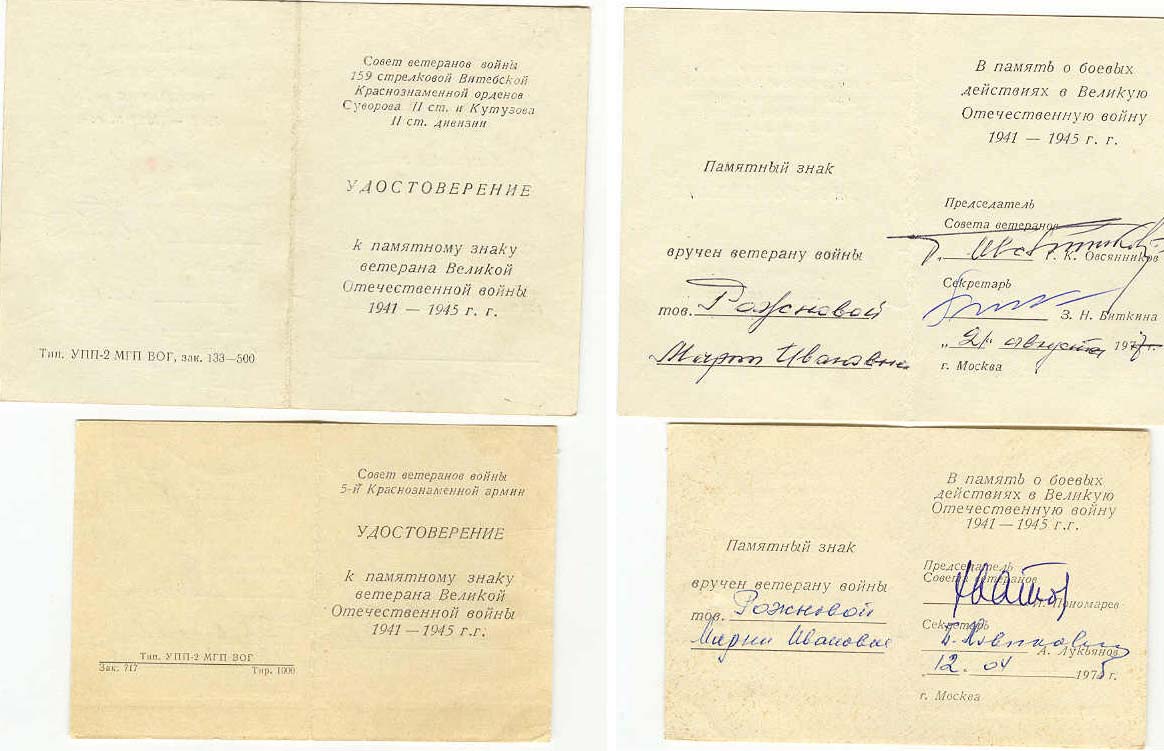 Совет ветеранов войны
159 стрелковой Витебской
Краснознаменной орденов
Суворова II ст. и Кутузова
II ст. дивизии
УДОСТОВЕРЕНИЕ
к памятному знаку
ветерана Великой
Отечественной войны
1941 — 1945 г. г.
Тип. УПП-2 МГП ВОГ, зак. 133—500
Памятный знак
вручен ветерану войны
тов. Рожновой
Марии Ивановне
В память о боевых
действиях в Великую
Отечественную войну
1941 — 1945 г. г.
Председатель
Совета ветеранов
Г. К. Овсянников
Секретарь
З. Н. Биткина
августа 1977 г.
г. Москва
Совет ветеранов войны
5-й Краснознаменной армии
УДОСТОВЕРЕНИЕ
к памятному знаку
ветерана Великой
Отечественной войны
1941 — 1945 г.г.
Тип. УПП-2 МГП ВОГ
Зак. 717 Тир. 1000
Памятный знак
вручен ветерану войны
тов. Рожновой
Марии Ивановне
В память о боевых
действиях в Великую
Отечественную войну
1941 — 1945 г.г.
Председатель
Совета ветеранов
Пономарев
Секретарь
А. Лукьянов
12. 04 197 г.
г. Москва